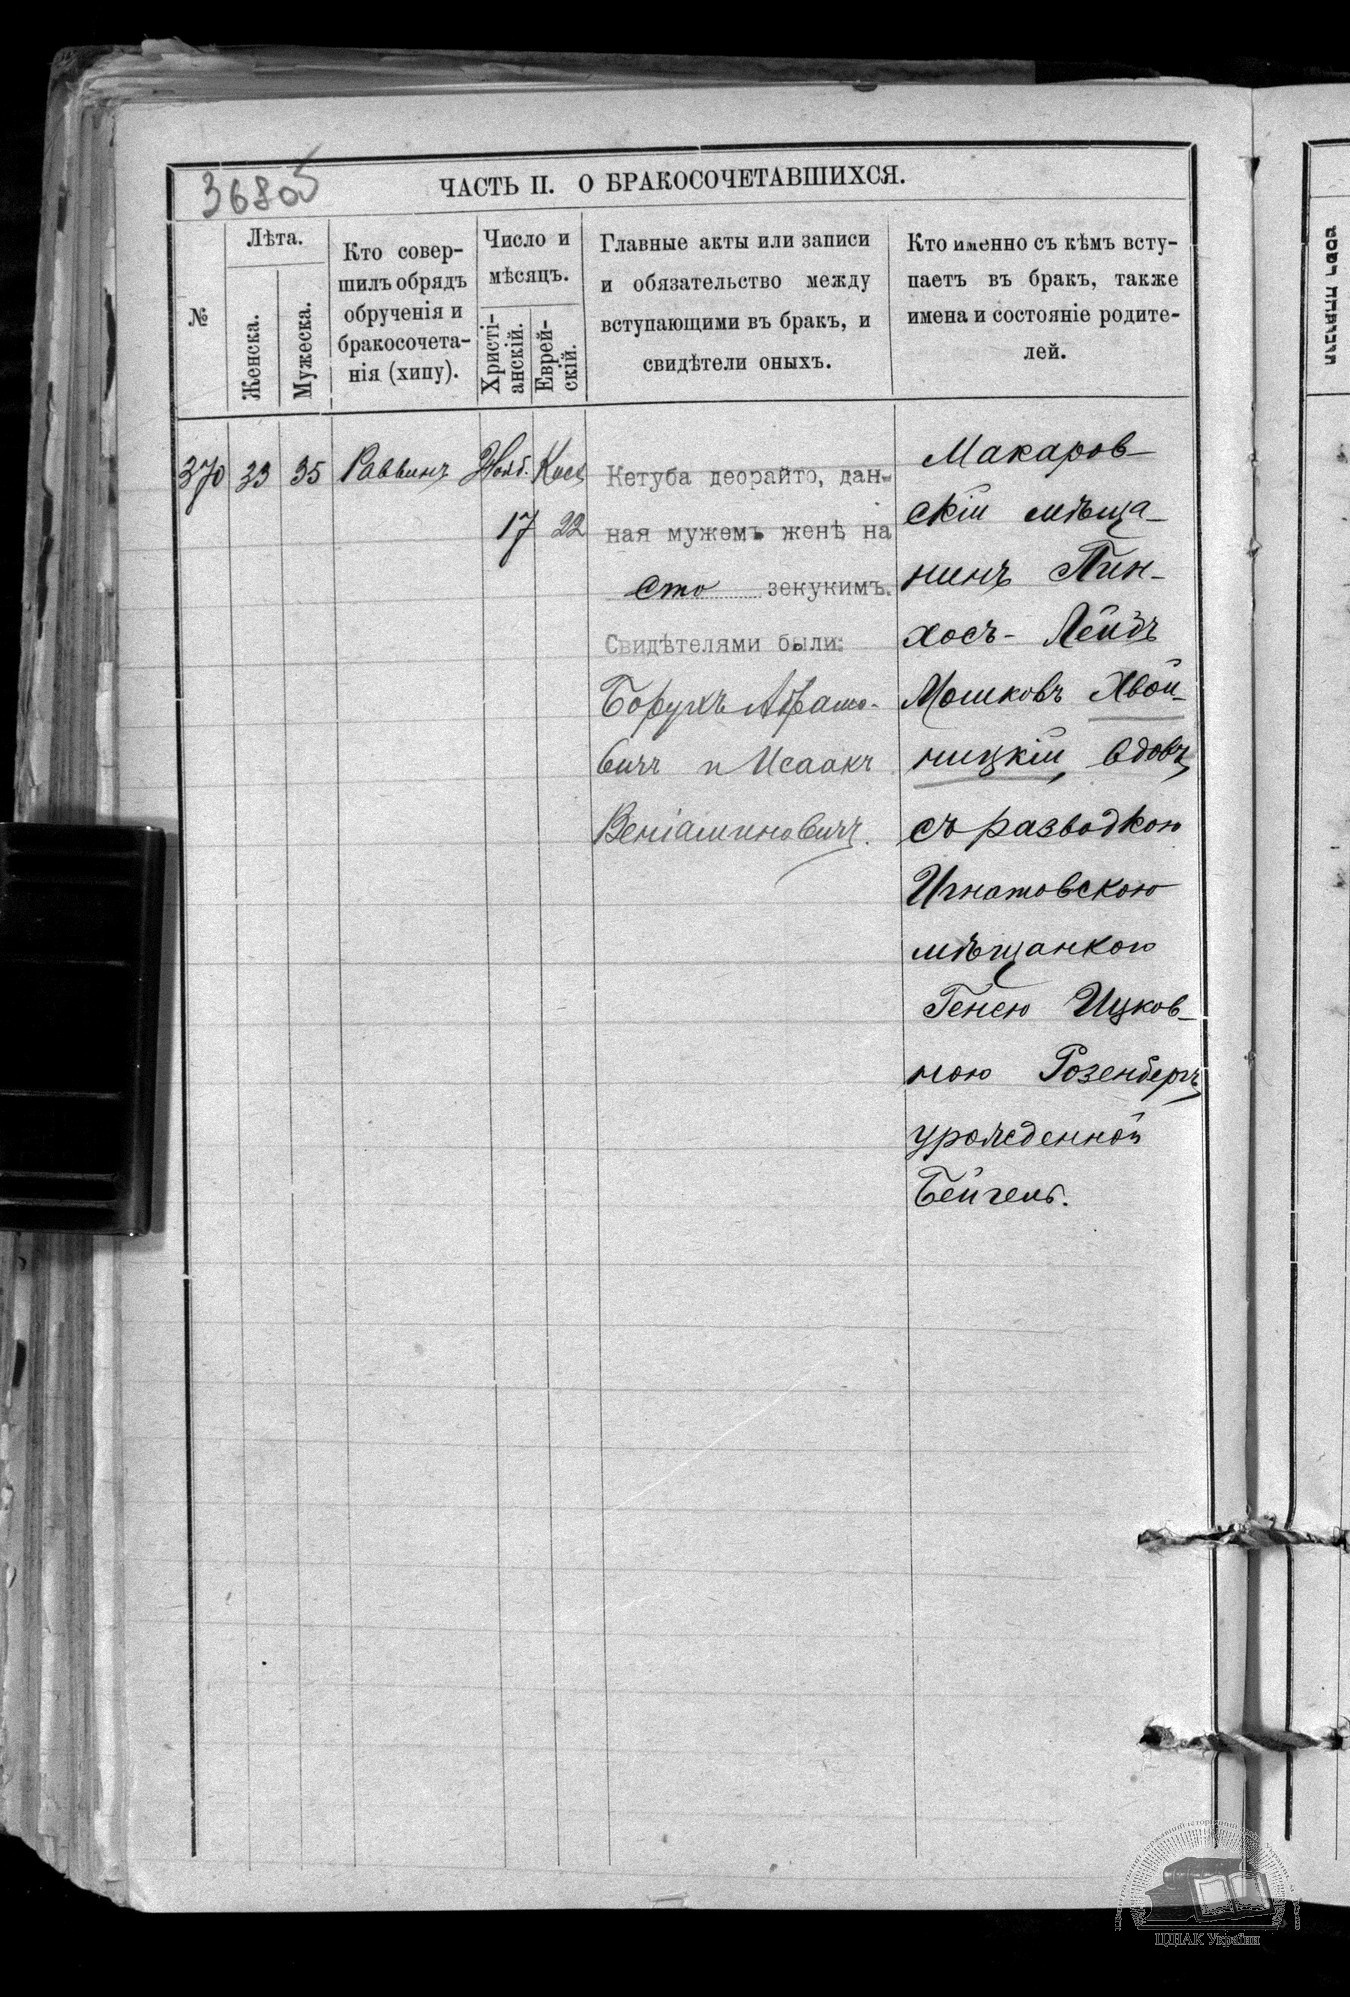 36805
ЧАСТЬ II. О БРАКОСОЧЕТАВШИХСЯ.
№
Лѣта.
Женска.
Мужеска.
Кто совер-
шилъ обрядъ
обрученія и
бракосочета-
нія (хипу).
Число и
мѣсяцъ.
Христі-
анскій.
Еврей-
скій.
Главные акты или записи
и обязательство между
вступающими въ брак, и
свидѣтели оныхъ.
Кто именно съ кѣмъ всту-
паетъ въ бракъ, также
имена и состояніе родите-
лей.
370
33
35
Раввинъ
Нояб.
17
Кисл
22
Кетуба деорайто, дан-
ная мужемъ женѣ на
сто зекукимъ.
Свидѣтелями были:
Борухъ Абрамо-
вичъ и Исаакъ
Веніаминовичъ.
Макаров-
скій мѣща-
нинъ Пин-
хосъ-Лейбъ
Мошковъ Хвой-
ницкій, вдовъ,
съ разводкою
Игнатовскою
мѣщанкою
Генею Ицков-
ною Розенбергъ,
урожденной
Бейгель.
ЦДІАК України